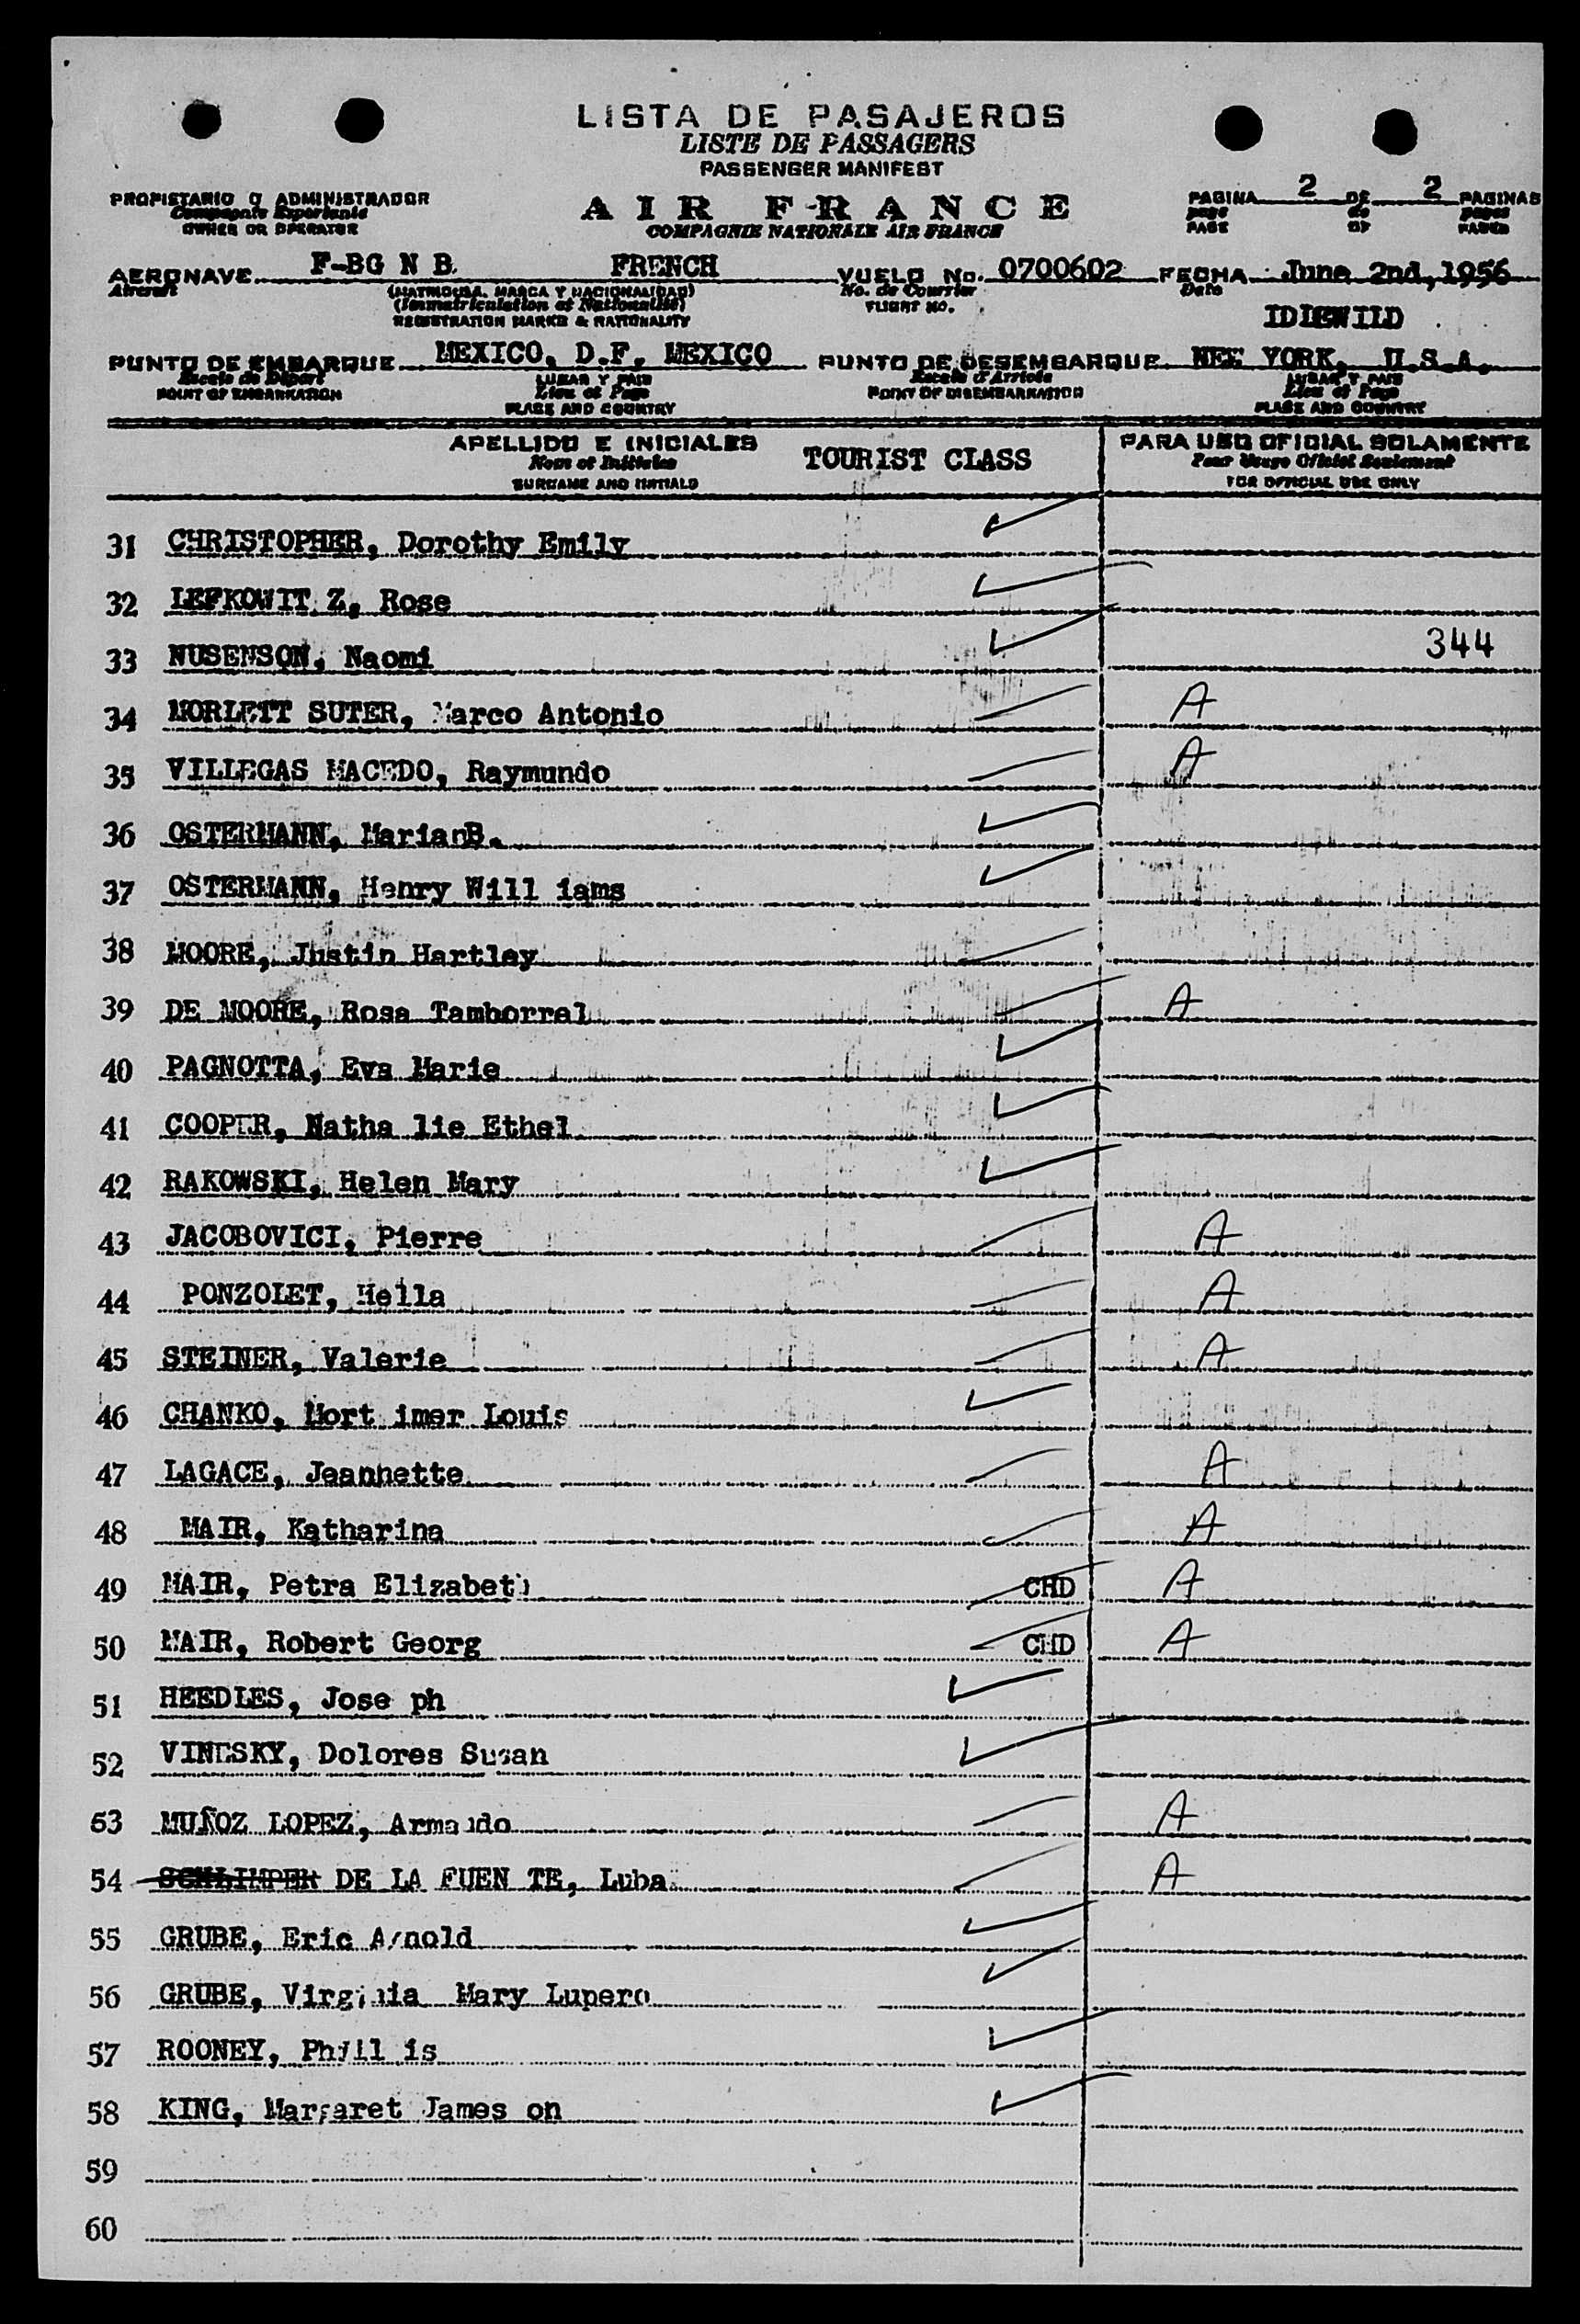 LISTA DE PASAJEROS
LISTE DE PASSAGERS
PASSENGER MANIFEST
PROPIETARIO O ADMINISTRADOR
OWNER OR OPERATOR
AIR FRANCE
COMPAGNIE NATIONALE AIR FRANCE
PAGINA 2 DE 2 PAGINAS
page de pages
PAGE OF PAGES
AERONAVE F-BG N B. FRENCH VUELO No. 0700602 FECHA June 2nd, 1956
Aircraft (MATRICULA, MARCA Y NACIONALIDAD) No. de Courrier Date
(Immatriculation et Nationalité) FLIGHT NO.
REGISTRATION MARKS & NATIONALITY
IDIEWILD
PUNTO DE EMBARQUE MEXICO, D.F, MEXICO PUNTO DE DESEMBARQUE NEE YORK, U.S.A.
Escale de Départ LUGAR Y PAIS Escale d'Arrivée LUGAR Y PAIS
POINT OF EMBARKATION Lieu et Pays POINT OF DISEMBARKATION Lieu et Pays
PLACE AND COUNTRY PLACE AND COUNTRY
APELLIDO E INICIALES TOURIST CLASS PARA USO OFICIAL SOLAMENTE
Nom et Initiales Pour Usage Officiel Seulement
SURNAME AND INITIALS FOR OFFICIAL USE ONLY
31 CHRISTOPHER, Dorothy Emily
32 LEFKOWIT Z, Rose
33 NUSENSON, Naomi 344
34 MORLETT SUTER, Marco Antonio A
35 VILLEGAS MACEDO, Raymundo A
36 OSTERMANN, MarianB.
37 OSTERMANN, Henry Will iams
38 MOORE, Justin Hartley
39 DE MOORE, Rosa Tamborrel A
40 PAGNOTTA, Eva Marie
41 COOPER, Natha lie Ethel
42 RAKOWSKI, Helen Mary
43 JACOBOVICI, Pierre A
44 PONZOLET, Hella A
45 STEINER, Valerie A
46 CHANKO, Mort imer Louis
47 LAGACE, Jeannette A
48 MAIR, Katharina A
49 MAIR, Petra Elizabeth CHD A
50 MAIR, Robert Georg CHD A
51 HEEDLES, Jose ph
52 VINESKY, Dolores Susan
53 MUÑOZ LOPEZ, Armando A
54 SCHLIMPER DE LA FUEN TE, Luba A
55 GRUBE, Eric Arnold
56 GRUBE, Virginia Mary Lupero
57 ROONEY, Phyll is
58 KING, Margaret James on
59
60